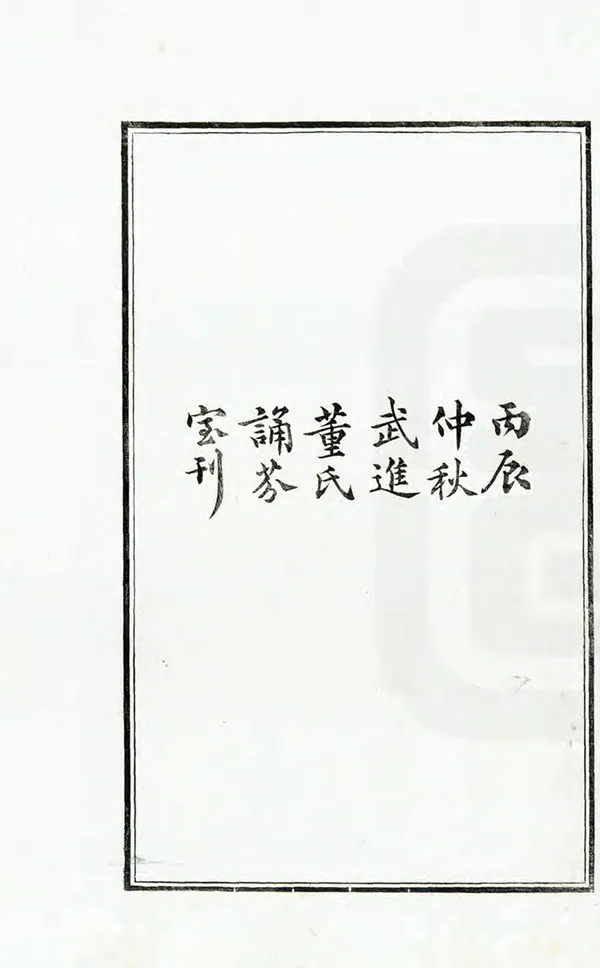 丙辰
仲秋
武進
董氏
誦芬
室刊